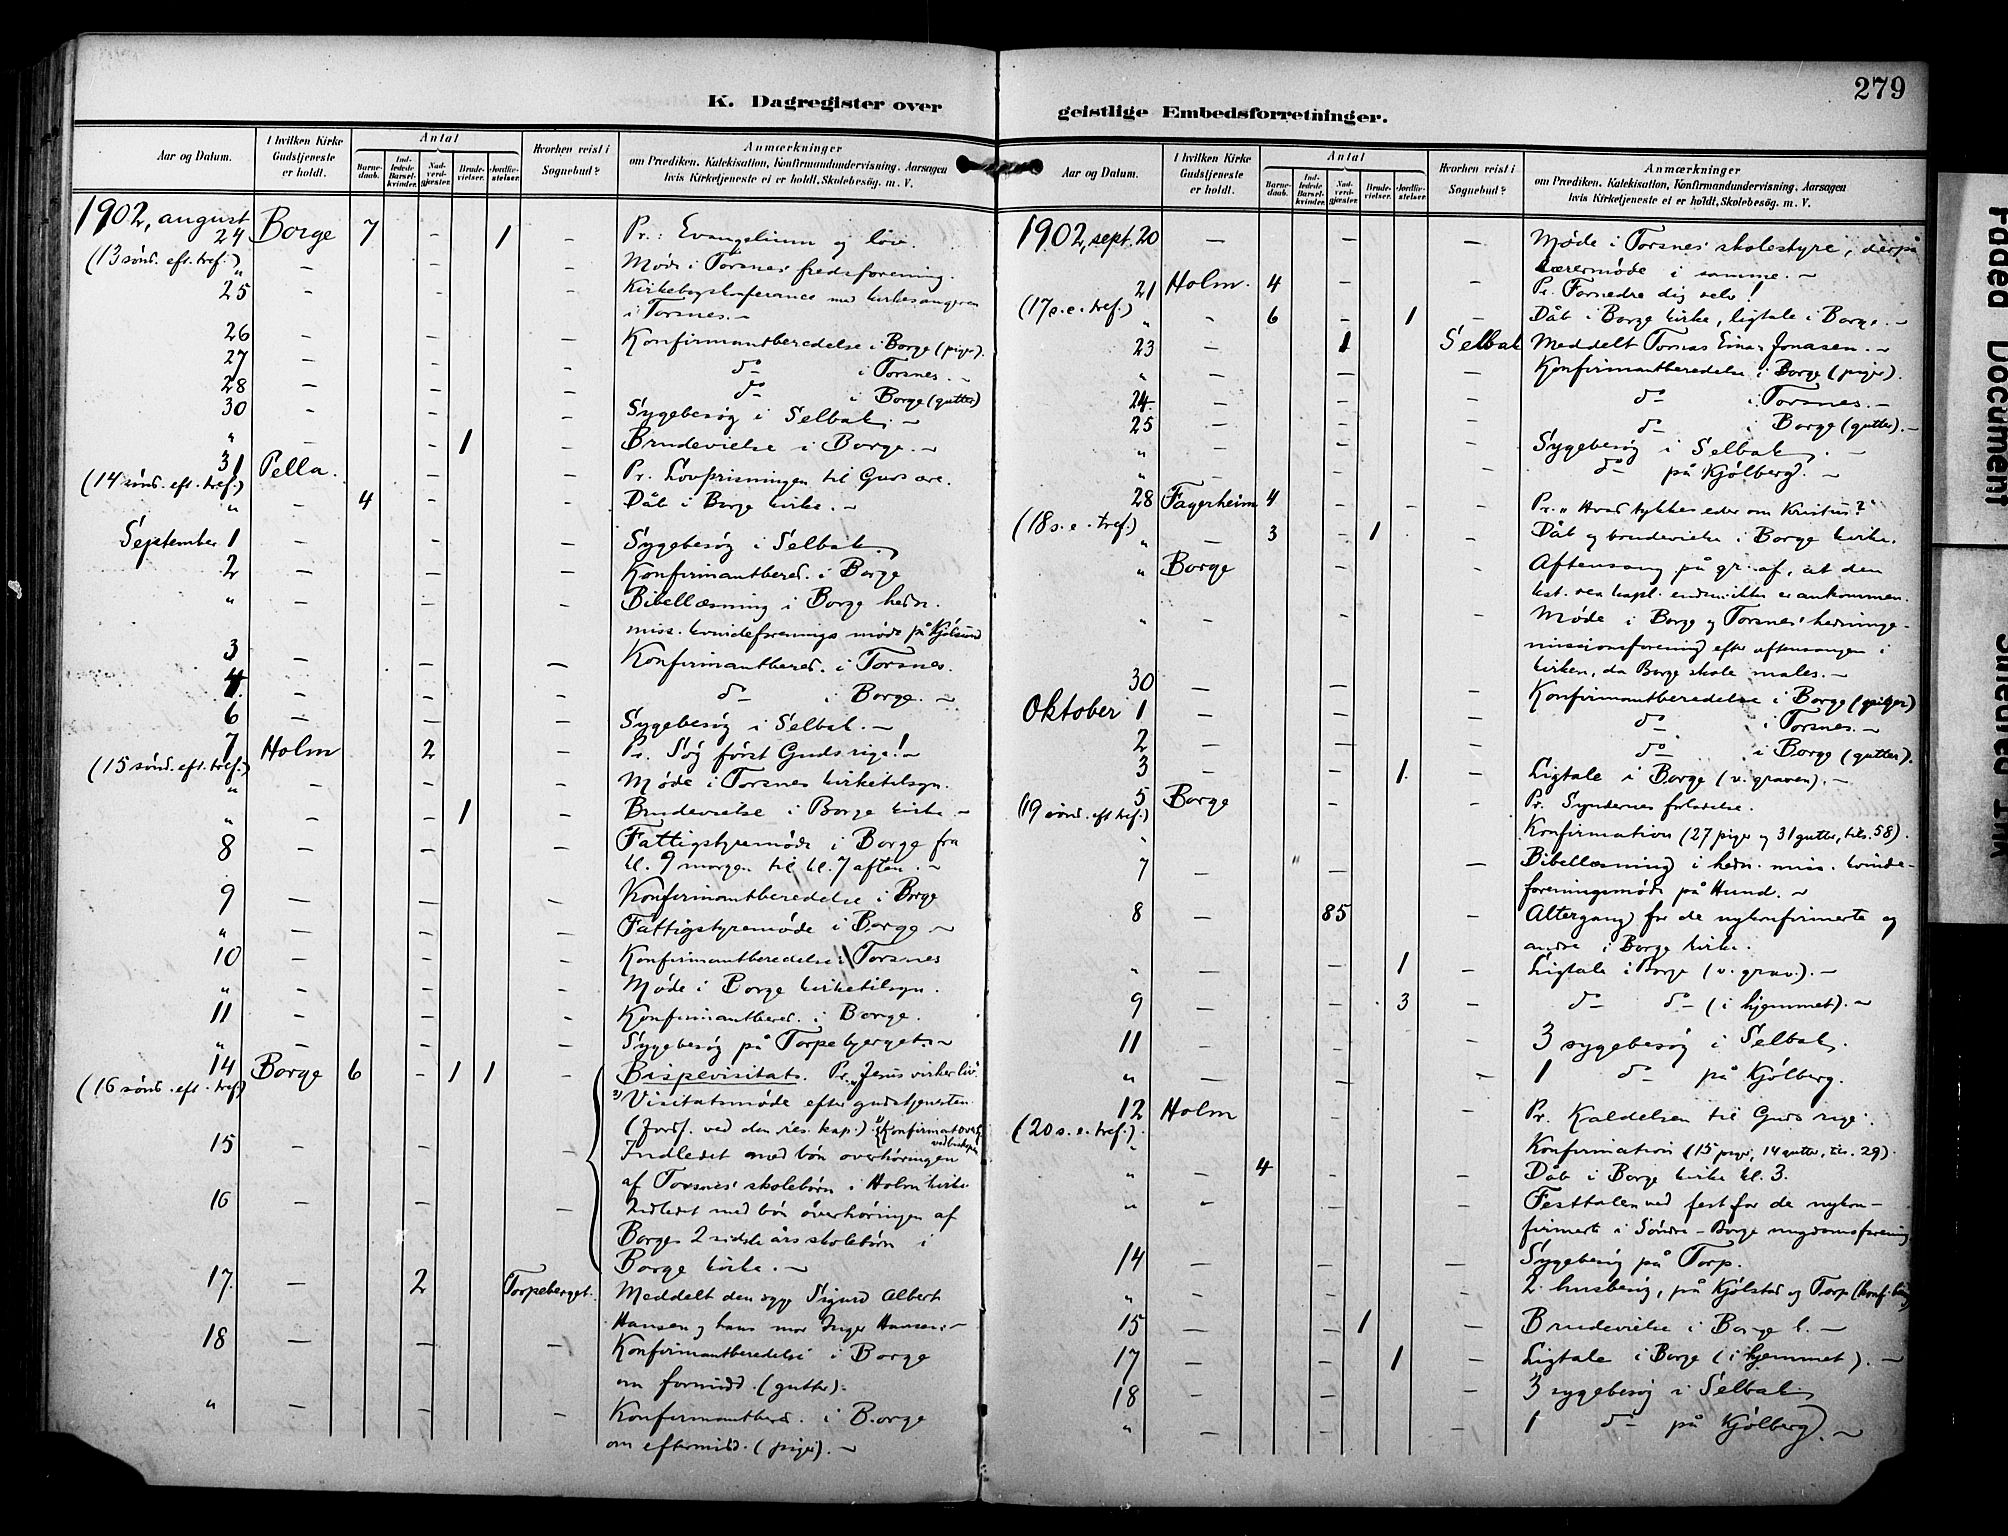 279
K. Dagregister over
geistlige Embedsforretninger.
Aar og Datum. I hvilken Kirke Gudstjeneste er holdt. Antal Barnedaab. Indledede Barselkvinder. Nadverdgjester. Brudevielser. Jordfæstelser. Hvorhen reist i Sognebud? Anmærkninger om Prædiken. Katekisation, Konfirmandundervisning, Aarsagen hvis Kirketjeneste ei er holdt, Skolebesøg. m. V.
1902, august
24 Borge 7 - 1 - Pr.: Evangelium og lov.
(13 sönd. eft. tref.) " - - - Møde i Torsnes fredsforening.
25 - - - Kirkebogskonference med kirkesangeren
i Torsnes. -
26 - - - Konfirmantberedelse i Borge (piger).
27 - - - do i Torsnes. -
28 - - - do i Borge (gutter)
30 - - - Sygebesøg i Selbak. -
" - - 1 - Brudevielse i Borge. -
31 Pella. - - Pr. Lovprisningen til Guds ære.
(14 sönd. eft. tref.) " - 4 - - Dåb i Borge kirke. -
September 1 - - - Sygebesøg i Selbak.
2 - - - Konfirmantbered. i Borge
" - - - Bibellæsning i Borge hedn.
miss. kvindeforenings møde på Kjölsund
3 - - - Konfirmantbered. i Torsnes.
4. - - - do i Borge. -
6 - - - Sygebesøg i Selbak. -
7 Holm 2 - Pr. Søg først Guds rige! -
(15 sönd. eft. tref.) " - - - Møde i Torsnes kirketilsyn.
" - - 1 - Brudevielse i Borge kirke -
8 - - - Fattigstyremøde i Borge fra
kl. 9 morgen til kl. 7 aften. -
9 - - - Konfirmantberedelse i Borge
" - - - Fattigstyremøde i Borge -
10 - - - Konfirmantberedelse i Torsnes
" - - - Møde i Borge kirketilsyn.
11 - - - Konfirmantbered. i Borge.
" - - - Sygebesøg på Torpebjerget. -
14 Borge 6 - 1 1 - Bispevisitats. Pr. "Jesus virker liv"
(16 sönd. eft. tref) Visitatsmøde efter gudstjenesten.
(Jordf. ved den res. kap.)
15 - - - Indledet med bön overhøringen
af Torsnes' skolebørn i Holm kirke
16 - - - Indledet med bön överhøringen af
Borges 2 sidste års skolebørn i
Borge kirke. -
17. - 2 Torpeberget. Meddelt den syge Sigurd Albert
Hansen og hans mor Inger Hansen. -
18 - - - Konfirmantberedelse i Borge
om formidd. (gutter).
" - - - Konfirmantbered. i Borge
om eftermidd. (piger). -
Aar og Datum. I hvilken Kirke Gudstjeneste er holdt. Antal Barnedaab. Indledede Barselkvinder. Nadverdgjester. Brudevielser. Jordfæstelser. Hvorhen reist i Sognebud? Anmærkninger om Prædiken. Katekisation, Konfirmandundervisning, Aarsagen hvis Kirketjeneste ei er holdt, Skolebesøg. m. V.
1902, sept. 20 - - - Møde i Torsnes' skolestyre, derpå
lærermøde i samme. -
21 Holm. 4 - - Pr. Fornedre dig selv!
(17 s. e. tref.) " - 6 - 1 - Dåb i Borge kirke, ligtale i Borge. -
23 - 1 Selbak Meddelt Tomas Einar Jonasen. -
" - - - Konfirmantberedelse i Borge (piger).
24. - - - do i Torsnes. -
25 - - - do i Borge (gutter). -
" - - - Sygebesøg i Selbak. -
" - - - do på Kjölberg. -
28 Fagerheim 4 - - - Pr. "Hvad tykkes eder om Kristus?"
(18 s. e. tref.) " - 3 - 1 - Dåb og brudevielse i Borge kirke.
" Borge - - Aftensang på gr. af, at den
" - - - Møde i Borge og Torsnes' hedninge-
missionsforening efter aftensangen i
kirken, da Borge skole males. -
30 - - - Konfirmantberedelse i Borge (piger)
Oktober 1 - - - do i Torsnes. -
2 - - - do i Borge (gutter).
3 - - 1. - Ligtale i Borge (v. graven). -
5 Borge - - Pr. Syndernes forladelse.
(19 sönd. eft tref.) " Konfirmation (27 piger og 31 gutter, tils. 58).
7 - " - - Bibellæsning i hedn. miss. kvinde-
foreningsmøde på Hund. -
8 - 85 - Altergang for de nykonfirmerte og
andre i Borge kirke.
" - - 1 - Ligtale i Borge (v. grav.). -
9 - - 3 - do do (i hjemmet). -
11 - - - 3 sygebesøg i Selbak.
" - - - 1 do på Kjölberg.
12 Holm - - Pr. Kaldelsen til Guds rige.
(20 s. e. tref.) Konfirmation (15 piger, 14 gutter, tils. 29).
" - 4 - - Dåb i Borge kirke kl. 3.
" - - - Festtalen ved fest for de nykon-
firmerte i Söndre-Borge ungdomsforening
14 - - - Sygebesøg på Torp.
" - - - 2 husbesøg, på Kjölstad og Torp
15 - - 1 - Brudevielse i Borge k. -
17 - - 1 - Ligtale i Borge (i hjemmet). -
18 - - - 3 sygebesøg i Selbak
" - - - 1 do på Kjölberg. -
Faded Document
Smeared Ink